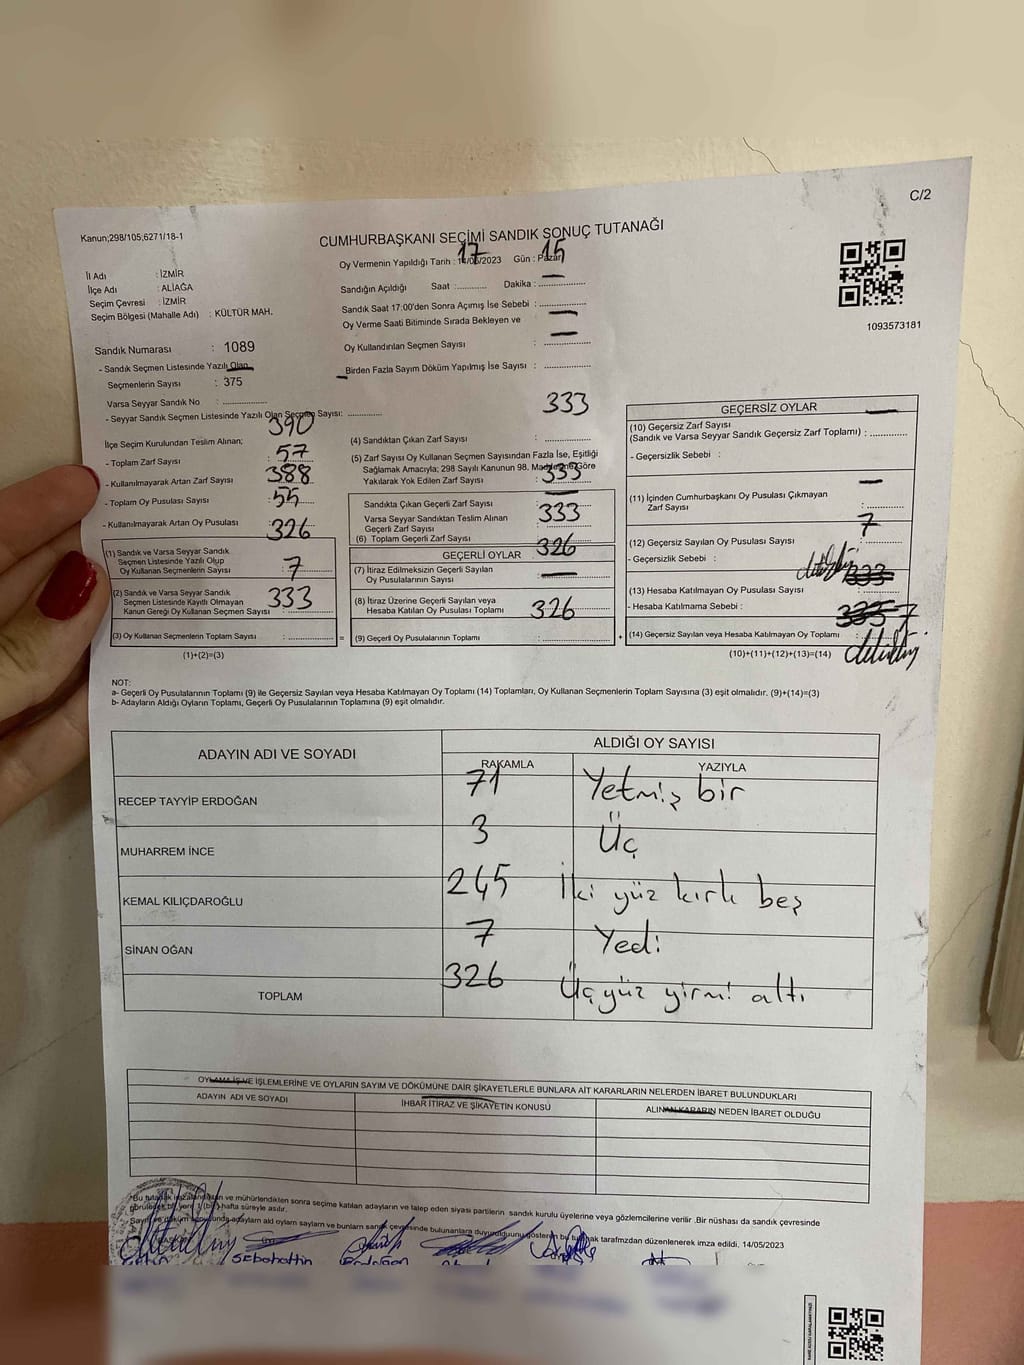 C/2
Kanun;298/105;6271/18-1
CUMHURBAŞKANI SEÇİMİ SANDIK SONUÇ TUTANAĞI
Oy Vermenin Yapıldığı Tarih : 14/05/2023 Gün : Pazar
17 15
İl Adı : İZMİR
İlçe Adı : ALİAĞA
Seçim Çevresi : İZMİR
Seçim Bölgesi (Mahalle Adı) : KÜLTÜR MAH.
Sandığın Açıldığı Saat :............ Dakika :................
Sandık Saat 17:00'den Sonra Açımış İse Sebebi :................
Oy Verme Saati Bitiminde Sırada Bekleyen ve
Oy Kullandırılan Seçmen Sayısı :................
Birden Fazla Sayım Döküm Yapılmış İse Sayısı :................
1093573181
Sandık Numarası : 1089
- Sandık Seçmen Listesinde Yazılı Olan
Seçmenlerin Sayısı : 375
Varsa Seyyar Sandık No :................
- Seyyar Sandık Seçmen Listesinde Yazılı Olan Seçmen Sayısı: ............
390
İlçe Seçim Kurulundan Teslim Alınan;
- Toplam Zarf Sayısı : 57
- Kullanılmayarak Artan Zarf Sayısı : 388
- Toplam Oy Pusulası Sayısı : 55
- Kullanılmayarak Artan Oy Pusulası : 326
(1) Sandık ve Varsa Seyyar Sandık
Seçmen Listesinde Yazılı Olup
Oy Kullanan Seçmenlerin Sayısı : 7
(2) Sandık ve Varsa Seyyar Sandık
Seçmen Listesinde Kayıtlı Olmayan
Kanun Gereği Oy Kullanan Seçmen Sayısı : 333
(3) Oy Kullanan Seçmenlerin Toplam Sayısı :................ =
(1)+(2)=(3)
333
(4) Sandıktan Çıkan Zarf Sayısı :................
(5) Zarf Sayısı Oy Kullanan Seçmen Sayısından Fazla İse, Eşitliği
Sağlamak Amacıyla; 298 Sayılı Kanunun 98. Maddesine Göre
Yakılarak Yok Edilen Zarf Sayısı : 333
Sandıkta Çıkan Geçerli Zarf Sayısı :
Varsa Seyyar Sandıktan Teslim Alınan
Geçerli Zarf Sayısı : 333
(6) Toplam Geçerli Zarf Sayısı :
GEÇERLİ OYLAR 326
(7) İtiraz Edilmeksizin Geçerli Sayılan
Oy Pusulalarının Sayısı :
(8) İtiraz Üzerine Geçerli Sayılan veya
Hesaba Katılan Oy Pusulası Toplamı : 326
(9) Geçerli Oy Pusulalarının Toplamı :................ +
GEÇERSİZ OYLAR
(10) Geçersiz Zarf Sayısı
(Sandık ve Varsa Seyyar Sandık Geçersiz Zarf Toplamı) :............
- Geçersizlik Sebebi :
(11) İçinden Cumhurbaşkanı Oy Pusulası Çıkmayan
Zarf Sayısı :............
7
(12) Geçersiz Sayılan Oy Pusulası Sayısı :............
- Geçersizlik Sebebi :
333
(13) Hesaba Katılmayan Oy Pusulası Sayısı :............
- Hesaba Katılmama Sebebi :
7
(14) Geçersiz Sayılan veya Hesaba Katılmayan Oy Toplamı :............
(10)+(11)+(12)+(13)=(14)
NOT:
a- Geçerli Oy Pusulalarının Toplamı (9) ile Geçersiz Sayılan veya Hesaba Katılmayan Oy Toplamı (14) Toplamları, Oy Kullanan Seçmenlerin Toplam Sayısına (3) eşit olmalıdır. (9)+(14)=(3)
b- Adayların Aldığı Oyların Toplamı, Geçerli Oy Pusulalarının Toplamına (9) eşit olmalıdır.
ADAYIN ADI VE SOYADI ALDIĞI OY SAYISI
RAKAMLA YAZIYLA
RECEP TAYYİP ERDOĞAN 71 Yetmiş bir
MUHARREM İNCE 3 Üç
KEMAL KILIÇDAROĞLU 245 İki yüz kırk beş
SİNAN OĞAN 7 Yedi
TOPLAM 326 Üç yüz yirmi altı
OYLAMA İŞ VE İŞLEMLERİNE VE OYLARIN SAYIM VE DÖKÜMÜNE DAİR ŞİKAYETLERLE BUNLARA AİT KARARLARIN NELERDEN İBARET BULUNDUKLARI
ADAYIN ADI VE SOYADI İHBAR İTİRAZ VE ŞİKAYETİN KONUSU ALINAN KARARIN NEDEN İBARET OLDUĞU
ve mühürlendikten sonra seçime katılan adayların ve talep eden siyasi partilerin sandık kurulu üyelerine veya gözlemcilerine verilir .Bir nüshası da sandık çevresinde
hafta süreyle asılır.
tarafımzdan düzenlenerek imza edildi, 14/05/2023